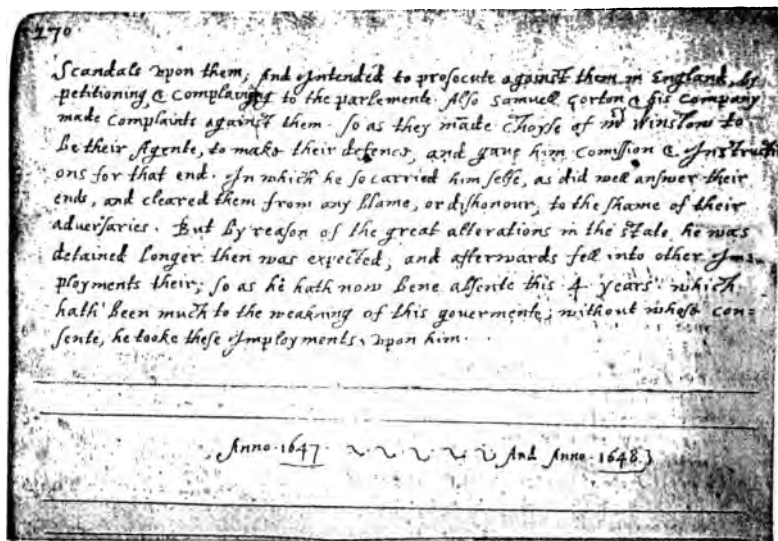 270
Scandals upon them, and Intended to prosecute against them in England, by
petitioning & Complaning to the parlemente. Also Samuell Gorton & his Company
made Complaints against them. so as they made Choyse of mr Winslow to
be their Agente, to make their defence, and gave him Comission & Instructi
ons for that end. In which he so carried him selfe, as did well answer their
ends, and cleared them from any blame, or dishonour, to the shame of their
adversaries. But by reason of the great alterations in the state, he was
detained longer then was expected, and afterwards fell into other Im=
ployments their; so as he hath now bene absente this 4 years, which
hath been much to the weakning of this govermente; without whose con=
sente, he tooke these Imployments, upon him.
Anno 1647. And Anno 1648.}